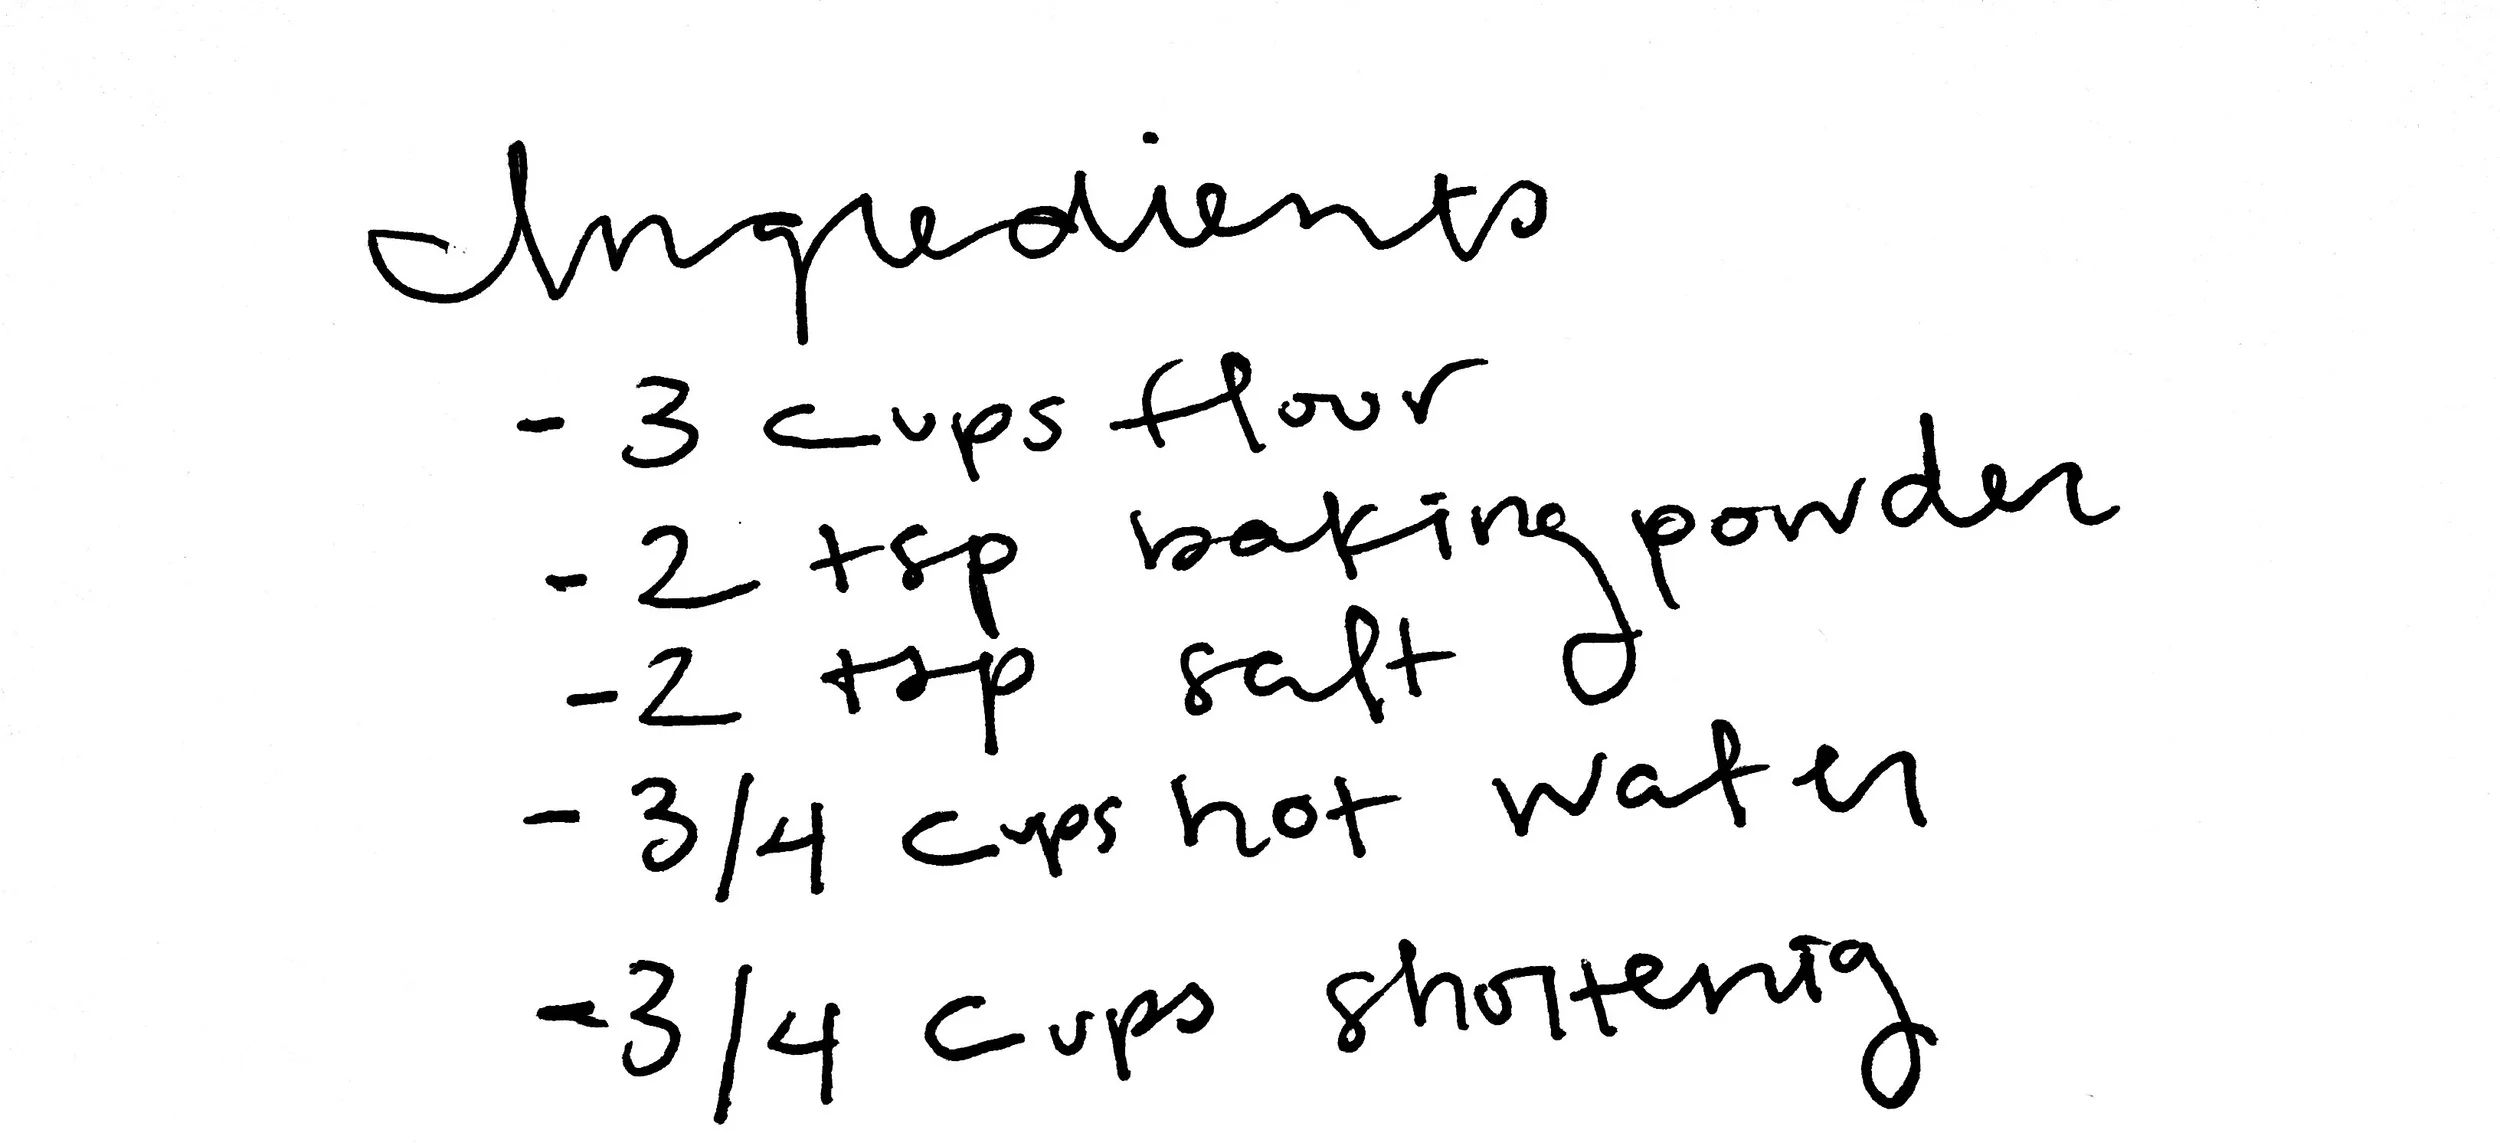 Ingredients
- 3 cups flour
- 2 tsp baking powder
- 2 tsp salt
- 3/4 cups hot water
- 3/4 cups shortenig